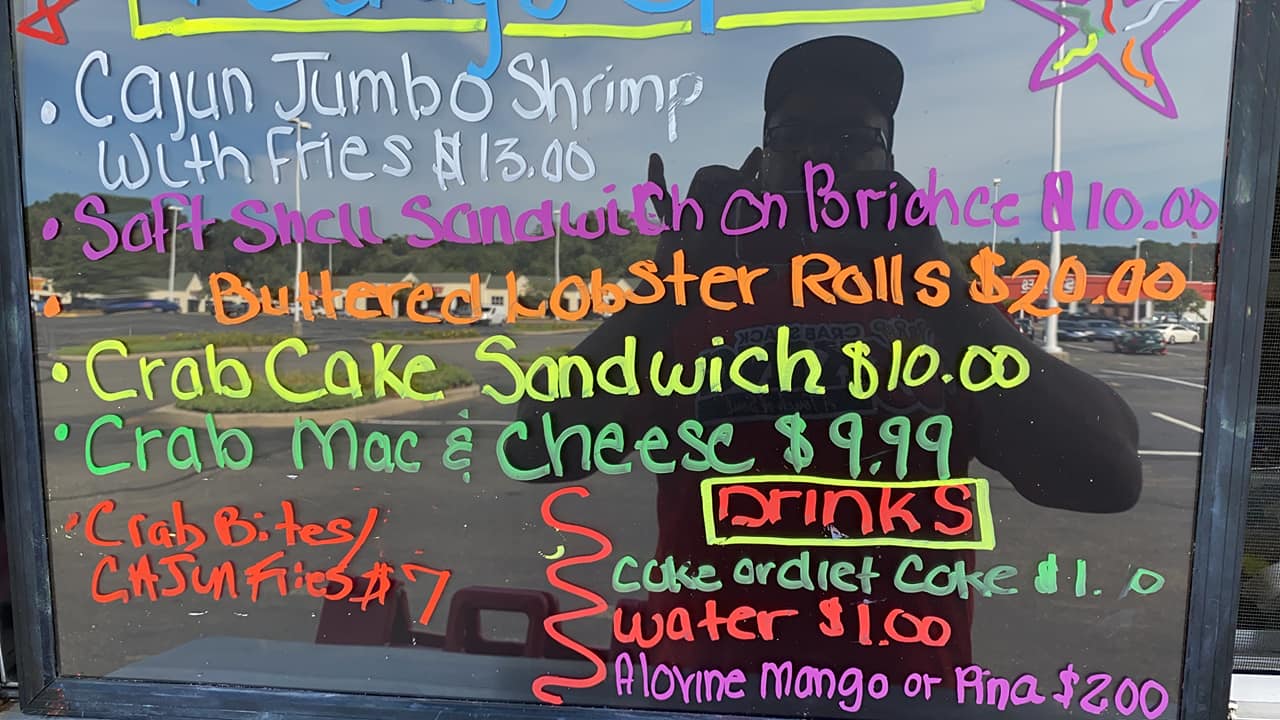 • Cajun Jumbo Shrimp
With Fries $13.00
• Soft Shell Sandwich on Briohce $10.00
• Buttered Lobster Rolls $20.00
• Crab Cake Sandwich $10.00
• Crab Mac & Cheese $9.99
• Crab Bites/
CAJun Fries $7
Drinks
Coke or diet Coke $1. 0
Water $1.00
Alovine Mango or Pina $200